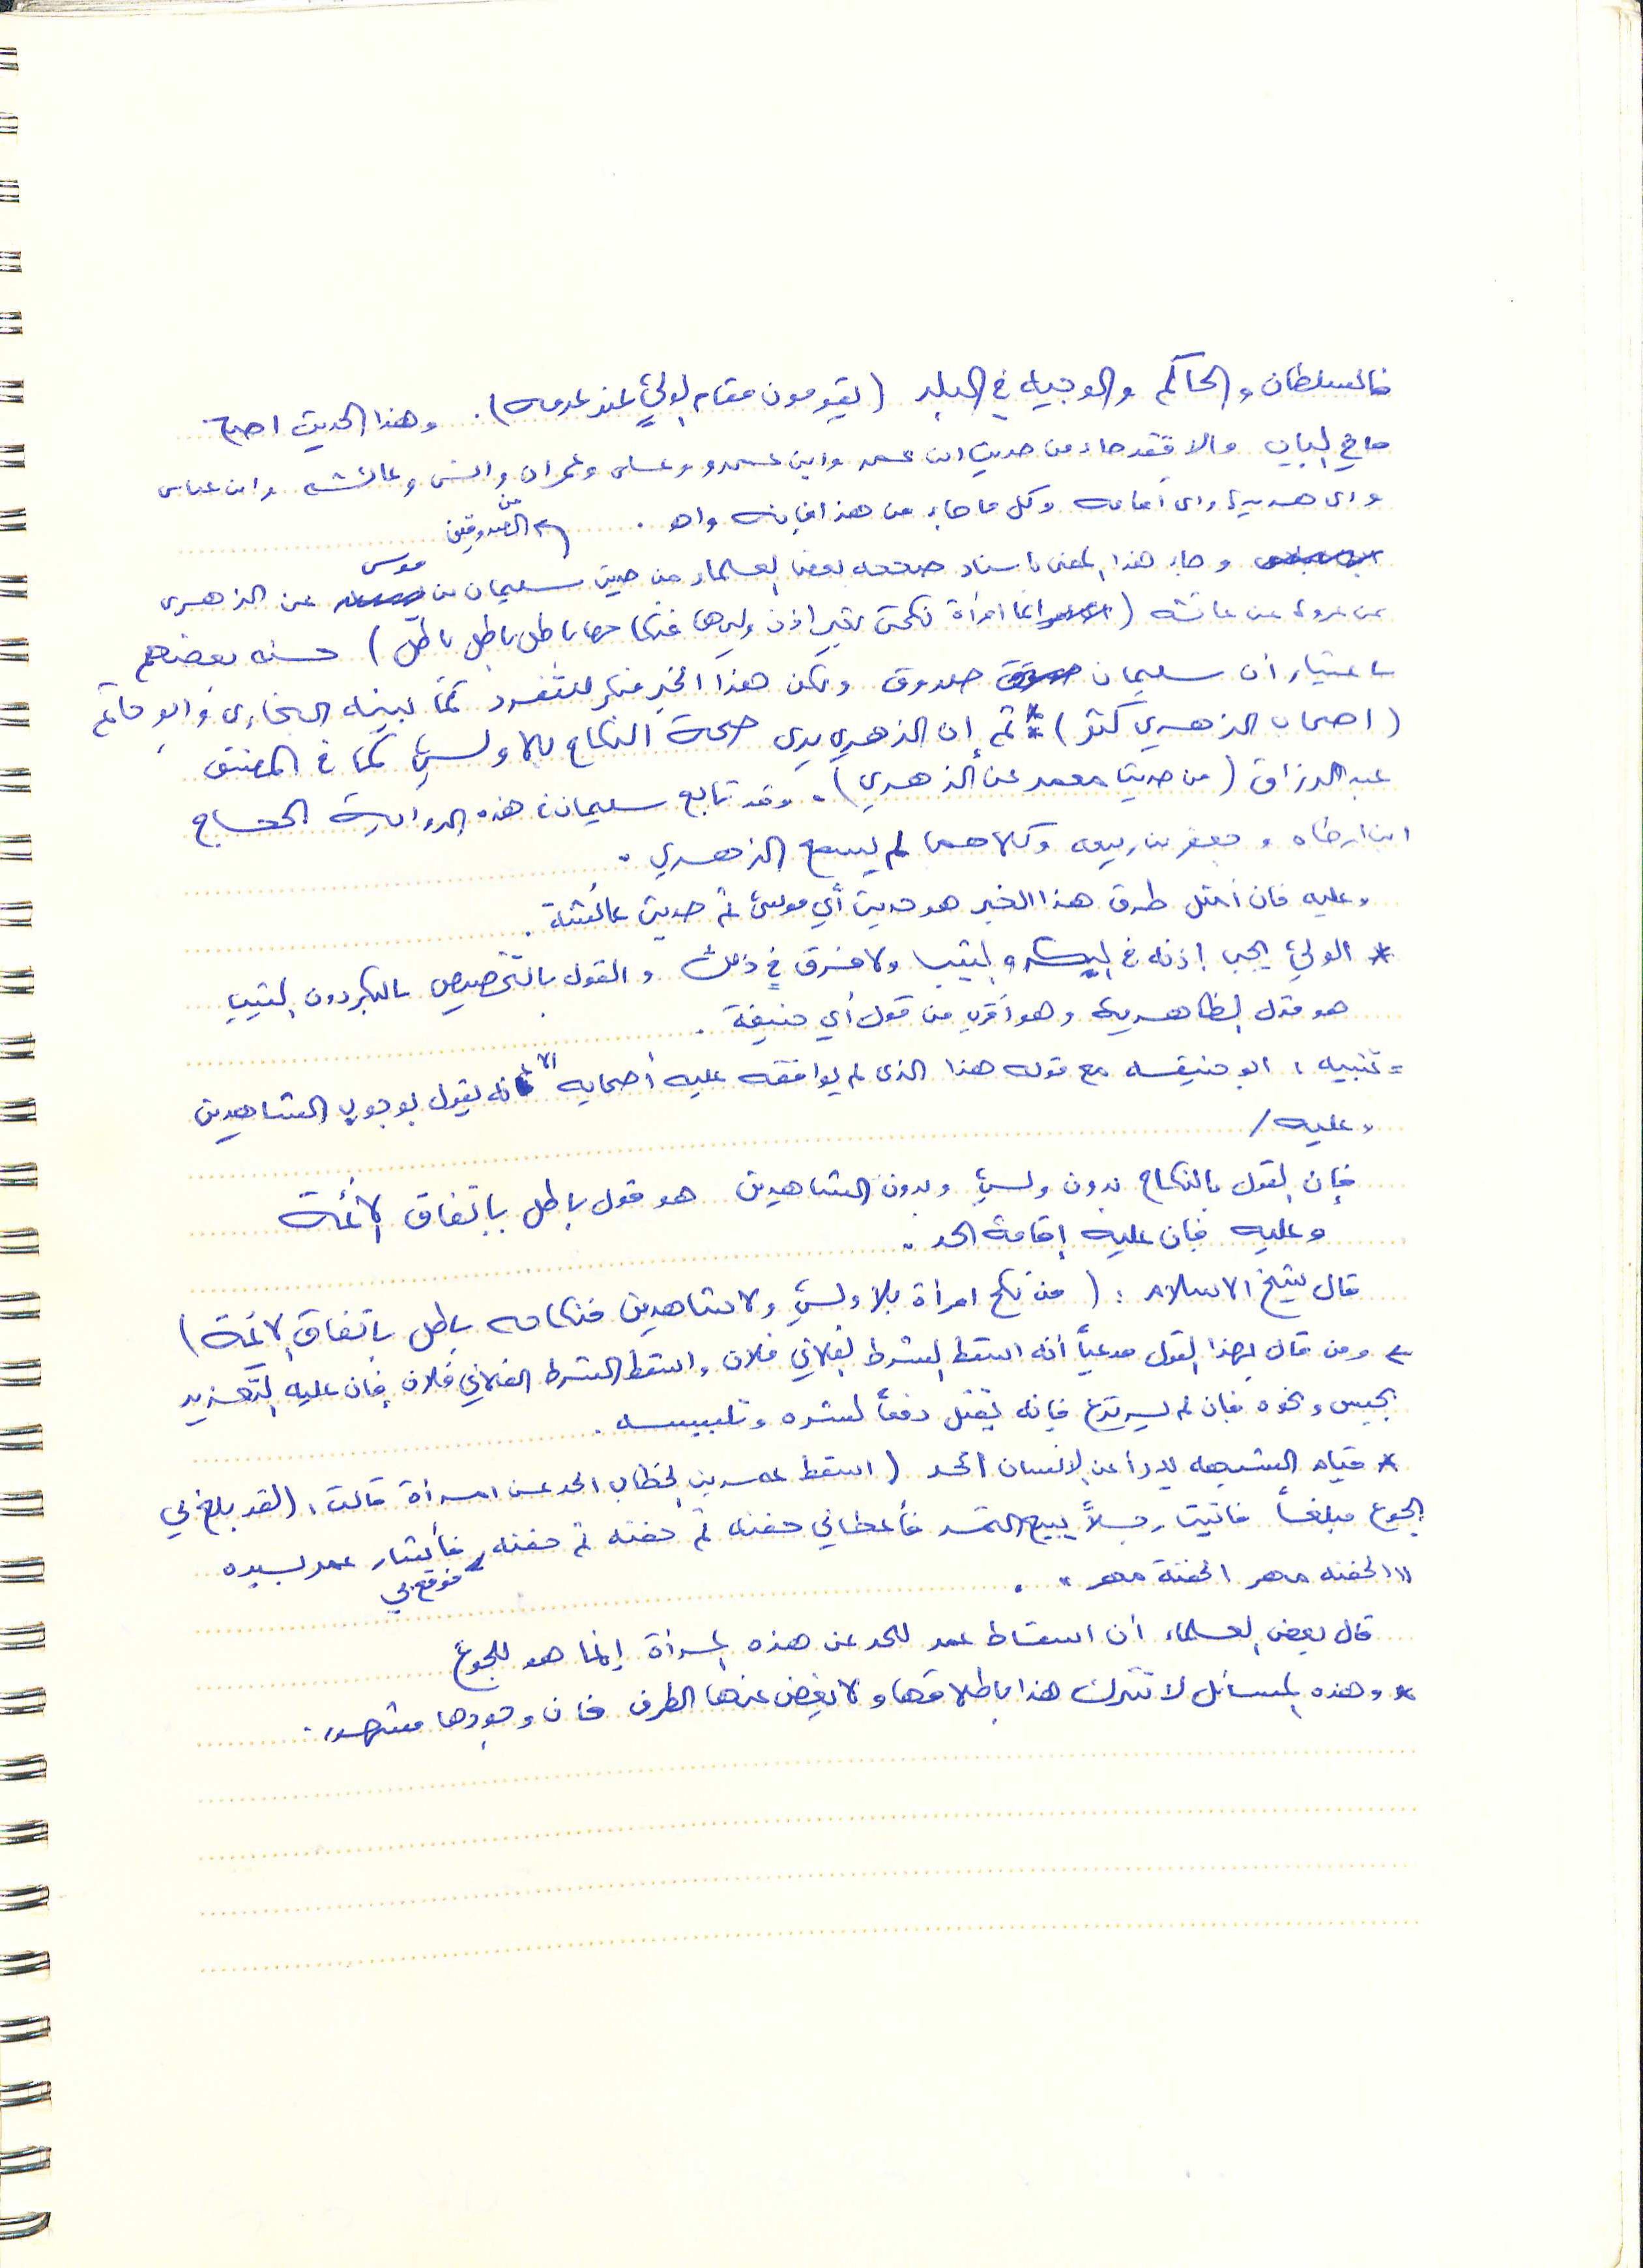 فالسلطان والحاكم والوجيه في البلد (يقومون مقام الولي عند عدمه). وهذا الحديث أصح
ما في الباب وإلا فقد جاء من حديث ابن عمر وابن عمرو وعلى وعمران وأنس وعائشه وابن عباس
وابى هريرة وابى أمامه وكل ما جاء من هذا فإنه واهٍ .
من الصدوقين
وجاء هذا المعنى باسناد صححه بعض العلماء من حديث سليمان بن موسى عن الزهرى
عن عروة عن عائشه (ايما امرأة نكحت بغير إذن وليها فنكاحها باطل باطل باطل) حسنه بعضهم
باعتبار أن سليمان صدوق ولكن هذا الخبر منكر للتفرد كما بينه البخاري وابو حاتم
(اصحاب الزهري كثر) * ثم إن الزهري يرى صحة النكاح بلا ولي كما في المصنف
عبد الرزاق (من حديث معمر عن الزهري). وقد تابع سليمان هذه الرواية الحجاج
ابن ارطاه وجعفر بن ربيعه وكلاهما لم يسمع الزهري .
وعليه فان أمثل طرق هذا الخبر هو حديث أبي موسى ثم حديث عائشة .
* الولي يجب إذنه في البكر والثيب ولا فرق في ذلك والقول بالتخصيص بالبكر دون الثيب
هو قول الظاهرية وهو أقرب من قول أبي حنيفة .
= تنبيه : ابو حنيفه مع قوله هذا الذى لم يوافقه عليه أصحابه الا انه يقول بوجوب الشاهدين
وعليه /
فإن القول بالنكاح بدون ولي وبدون الشاهدين هو قول باطل باتفاق الأئمة
وعليه فإن عليه إقامة الحد .
قال شيخ الاسلام : (من نكح امرأة بلا ولي ولا شاهدين فنكاحه باطل باتفاق الائمة)
ومن قال بهذا القول مدعياً أنه اسقط الشرط الفلاني فلان واسقط الشرط الفلاني فلان فإن عليه التعزير
بحبس ونحوه فإن لم يرتدع فإنه يقتل دفعاً لشره وتلبيسه .
* قيام الشبهه يدرأ عن الانسان الحد (اسقط عمر بن الخطاب الحد عن امرأة قالت : (لقد بلغ بي
الجوع مبلغاً فأتيت رجلاً يبيع التمر فأعطاني حفنه ثم حفنه ثم حفنه فوقع بي فأشار عمر بيده
"الحفنه مهر الحفنة مهر" .
قال بعض العلماء أن اسقاط عمر للحد عن هذه المرأة إنما هو للجوع
* وهذه المسائل لا تترك هذا باطلاقها ولا يغض عنها الطرف فان وجودها مشهور .